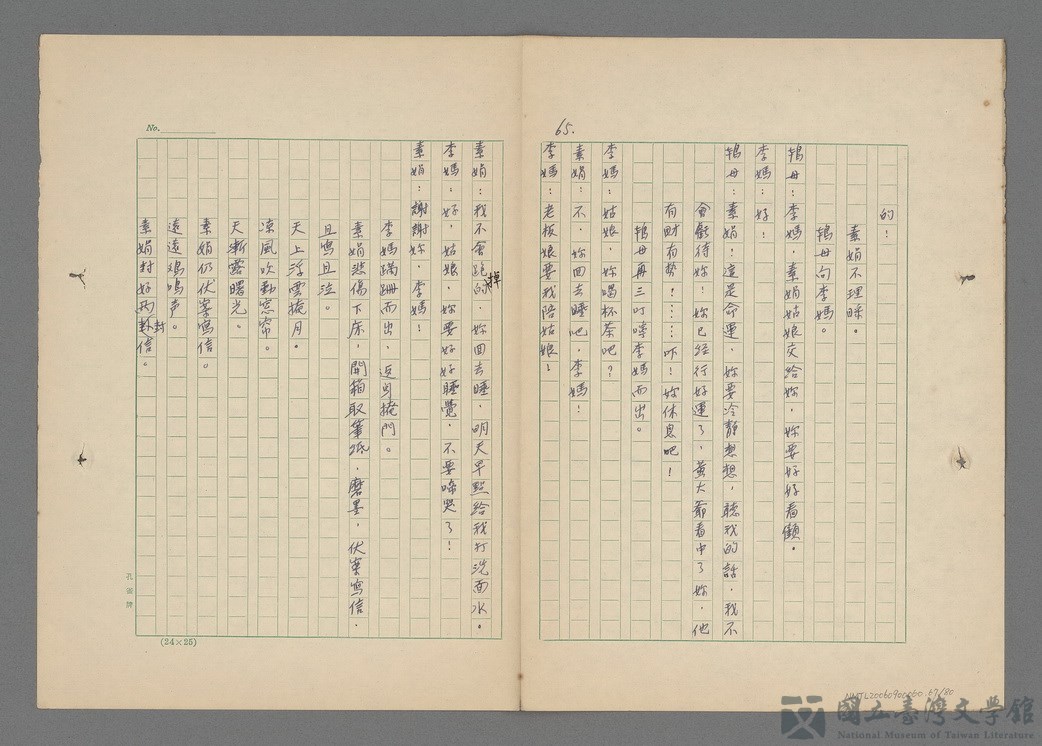 65.
的!
素娟不理睬。
鴇母向李媽。
鴇母：李媽，素娟姑娘交給妳，妳要好好看顧。
李媽：好!
鴇母：素娟!這是命運，妳要冷靜想想，聽我的話，我不
會虧待妳!妳已經行好運了，黃大爺看中了妳，他
有財有勢!……吓!妳休息吧!
鴇母再三叮嚀李媽而出。
李媽：姑娘，妳喝杯茶吧?
素娟：不，妳回去睡吧，李媽!
李媽：老板娘要我陪姑娘!
No.
素娟：我不會跑掉的，妳回去睡，明天早點給我打洗面水。
李媽：好，姑娘，妳要好好睡覺，不要啼哭了!
素娟：謝謝妳，李媽!
李媽蹣跚而出，返身掩門。
素娟悲傷下床，開箱取筆紙，磨墨，伏案寫信，
且寫且泣。
天上浮雲掩月。
涼風吹動窓帘。
天漸露曙光。
素娟仍伏案寫信。
遠遠鷄鳴声。
素娟封好兩封信。
孔雀牌
(24×25)
NMTL20060900060.67/80
國立臺灣文學館
National Museum of Taiwan Literature